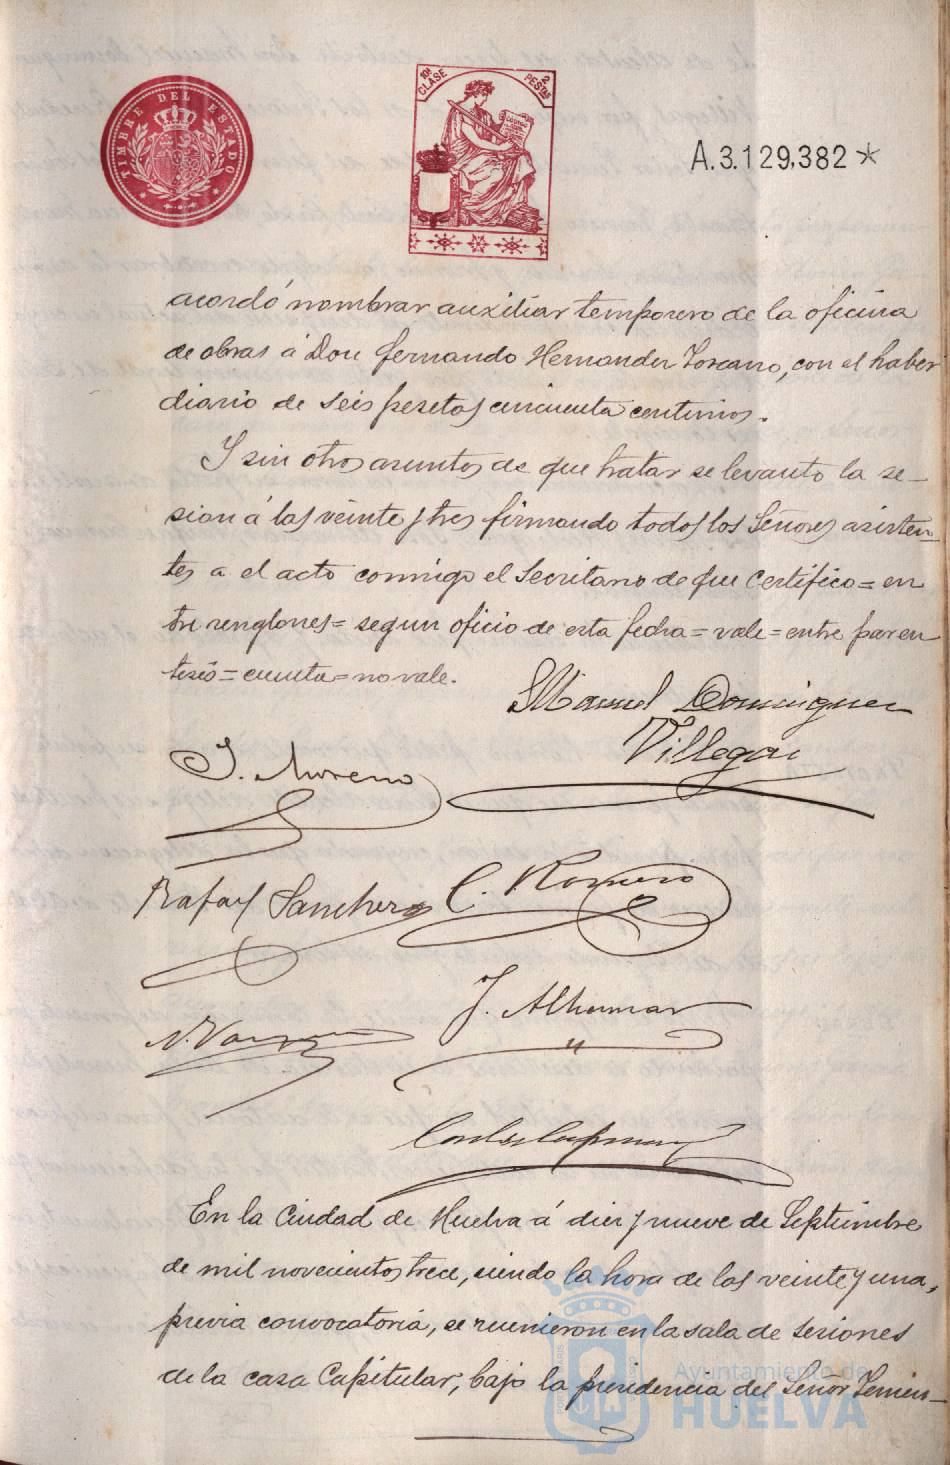 TIMBRE DEL ESTADO
10ª CLASE
2 PESTAS
A.3.129,382*
acordó nombrar auxiliar temporero de la oficina
de obras á Don Fernando Hernandez Toscano, con el haber
diario de seis pesetas cincuenta centimos.
Y sin otros asuntos de que tratar se levanto la se-
sion á las veinte y tres firmando todos los Señores asisten-
tes a el acto conmigo el Secretario de que certifico = en
tre renglones = segun oficio de esta fecha = vale = entre paren
tesis = cuenta = no vale.
Manuel Dominguez
Villegas
J. Moreno
Rafael Sanchez
C. Romero
J. Alhamar
En la Ciudad de Huelva á diez y nueve de Septiembre
de mil novecientos trece, siendo la hora de las veinte y una,
previa convocatoria, se reunieron en la sala de sesiones
de la casa Capitular, bajo la presidencia del Señor Tenien-
Ayuntamiento de
HUELVA